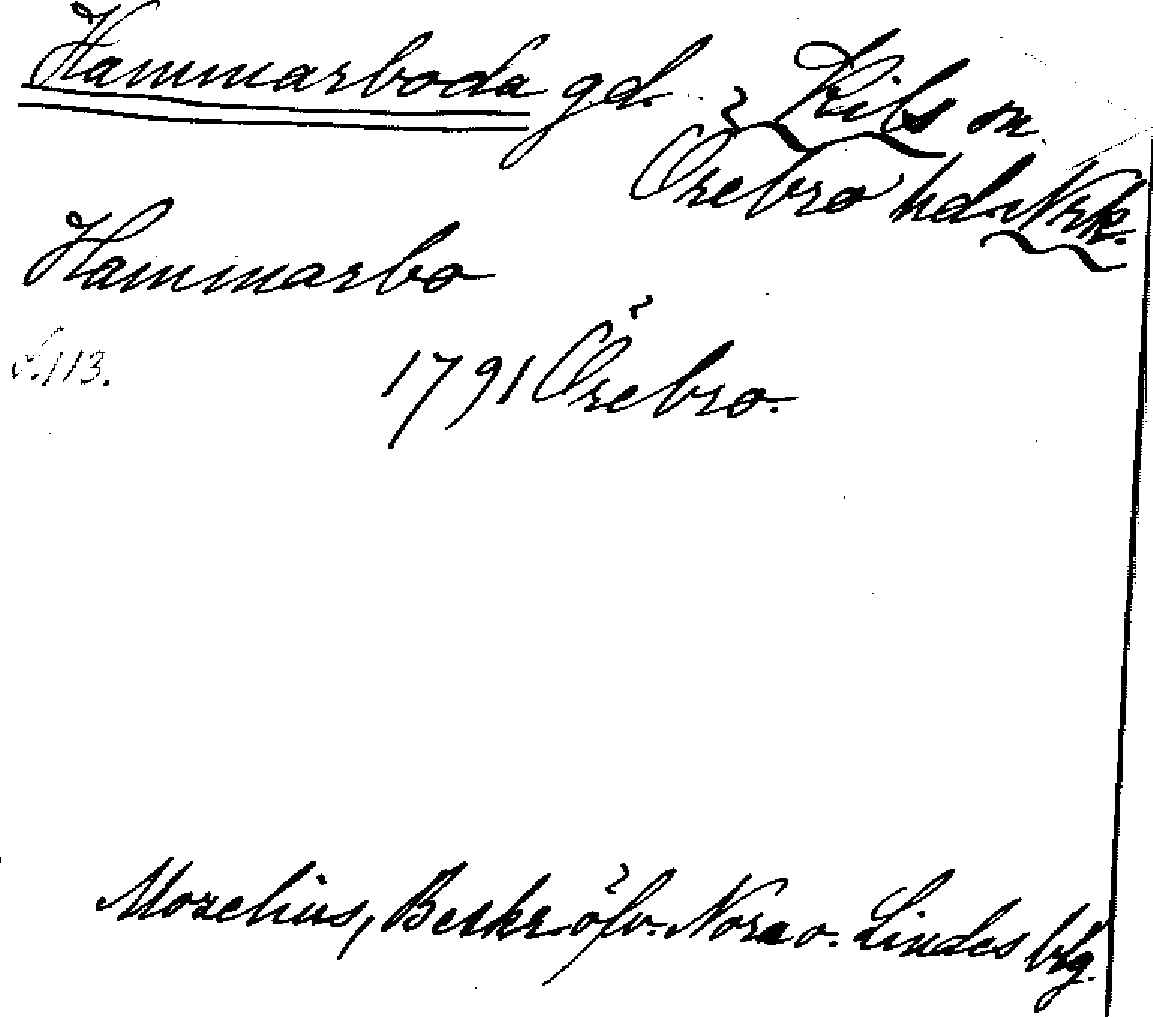 Hammarboda gd. Kils sn
Örebro hd. Nrk.
Hammarbo
s. 113.
1791 Örebro.
Mozelius, Beskr. öfv. Nora o. Lindes brlg.